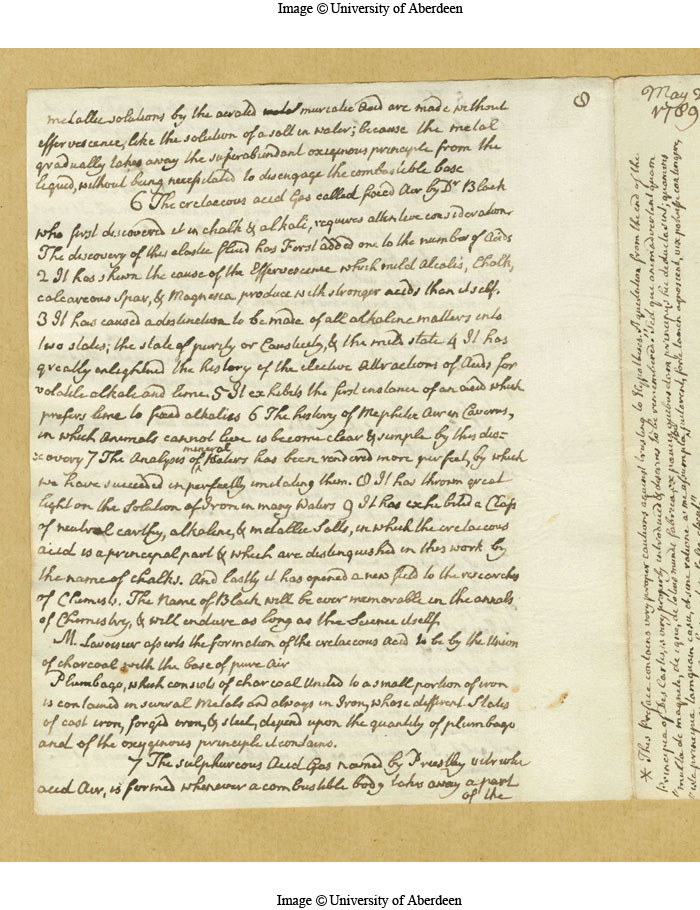 Image © University of Aberdeen
8
metallic solutions by the aerated muriatic Acid are made without
effervescence, like the solution of a salt in water; because the metal
gradually takes away the superabundant oxiginous principle from the
liquid, without being necessitated to disengage the combustible base
6 The cretaceous acid Gas called fixed Air by Dr Black
who first discovered it in chalk & alkali, requires attentive consideration
The discovery of this elastic fluid has First added one to the number of Acids
2 It has shewn the cause of the Effervescence which mild Alcalis, Chalk,
calcareous Spar, & Magnesia produce with stronger acids than itself.
3 It has caused a destinction to be made of all alkaline matters into
two states; the state of purity or Causticity, & the mild state 4 It has
greatly enlightned the history of the elective Attractions of Acids for
volatile alkali and lime. 5 It exhibits the first instance of an acid which
prefers lime to fixed alkalies 6 The history of Mephitic Air in Caverns,
in which Animals cannot live is become clear & simple by this dis=
covery 7 The Analysis of mineral Waters has been rendered more perfect, by which
we have succeeded in perfectly imitating them. 8 It has thrown great
light on the Solution of Iron in many Waters 9 It has exhibited a Class
of neutral earthy, alkaline, & metallic Salts, in which the cretaceous
acid is a principal part & which are distinguished in this work by
the name of chalks. And lastly it has opened a new field to the researches
of Chemists. The Name of Black will be ever memorable in the annals
of Chemistry, & will endure as long as the Science itself.
M. Lavoisier asserts the formation of the cretaceous Acid to be by the Union
of charcoal with the base of pure Air
Plumbago, which consists of charcoal United to a small portion of iron
is contained in several Metals and always in Iron, whose different States
of cast iron, forged iron, & steel, depend upon the quantity of plumbago
and of the oxyginous principle it contains.
7 The sulphureous Acid Gas named by Priestley vitriolic
acid Air, is formed whenever a combustible body takes away a part
of the
May
1789
* This Preface contains very proper cautions against trusting to Hypotheses. A quotation from the end of the
Principia of Des Cartes, is very properly introduced & deserves to be remembered.
Image © University of Aberdeen